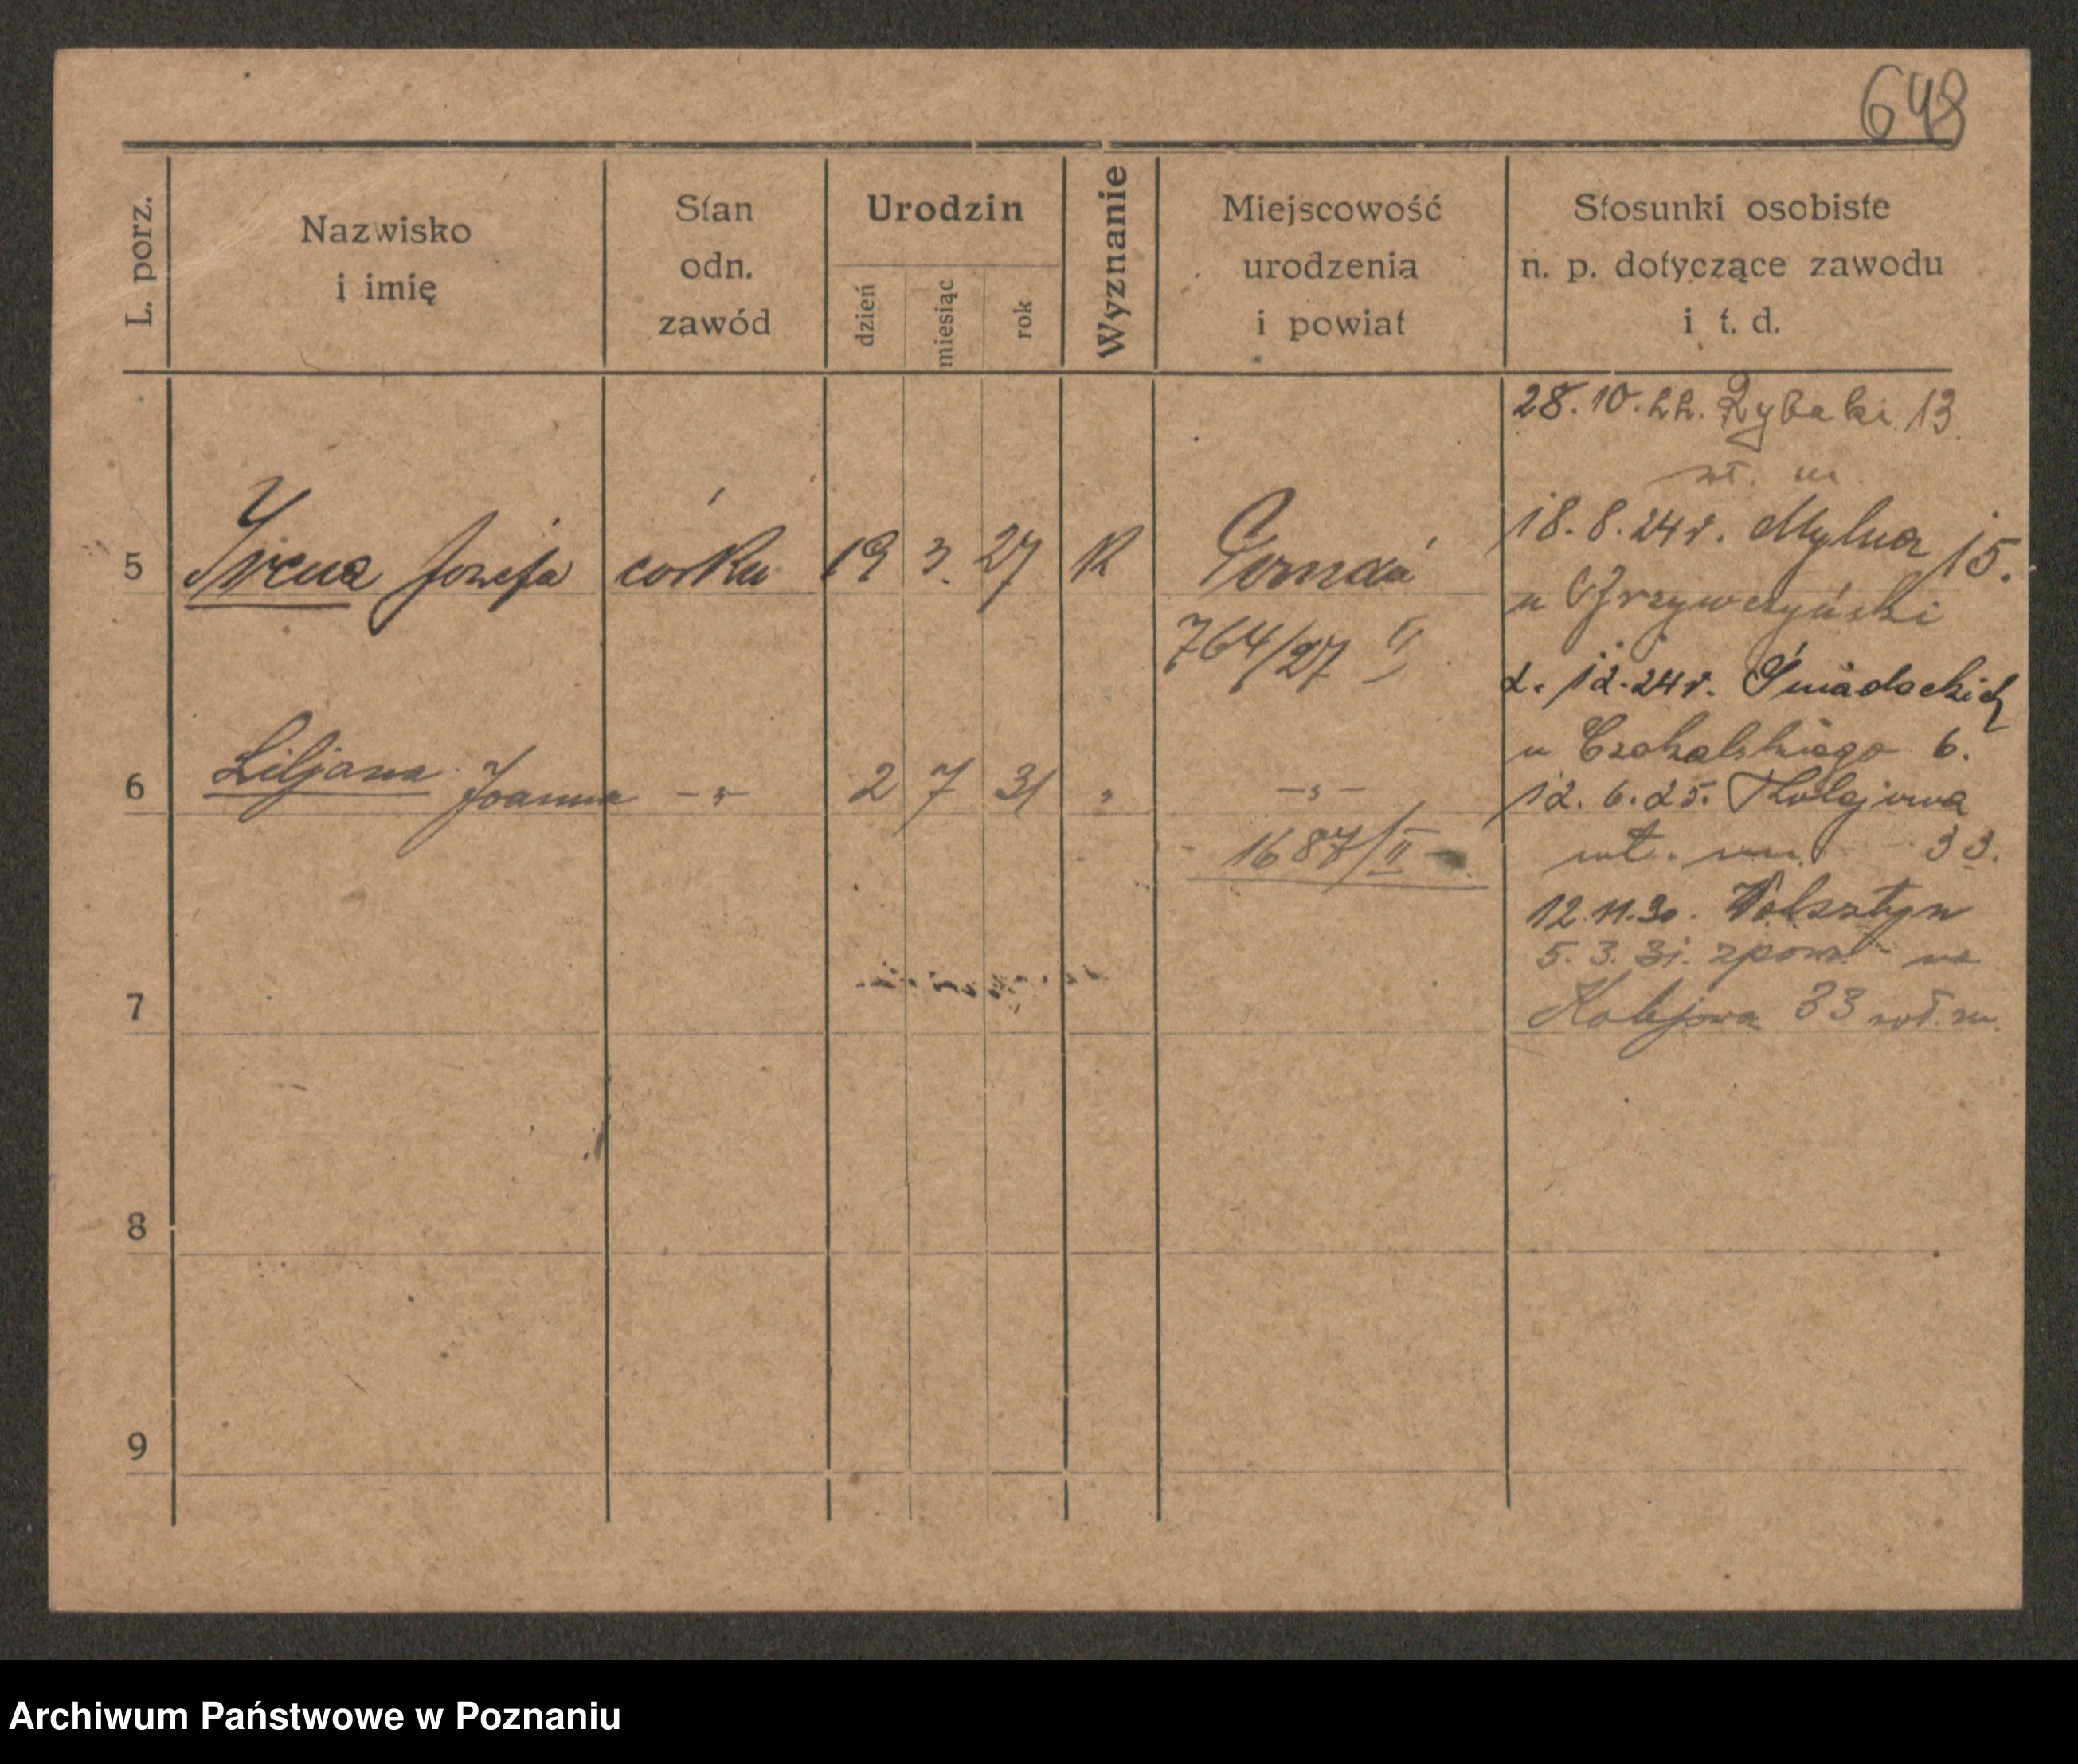 648
L. porz.
Nazwisko
i imię
Stan
odn.
zawód
Urodzin
dzień
miesiąc
rok
Wyznanie
Miejscowość
urodzenia
i powiat
Stosunki osobiste
n. p. dotyczące zawodu
i t. d.
28.10.22. Rybaki 13
wł. m.
5 Irena Józefa córka 19 3. 27 K Poznań
764/27 II
18.8.24 r. Mylna 15.
u Grzywczyński
2. 12. 24 r. Śniadeckich
u 6.
6 Liljana Joanna -„- 2 7 31 „ -„-
1687/II
12. 6. 25. Kolejowa
wł. m. 33.
12.11.30. Wolsztyn
5. 3. 31. zpow. na
Kolejowa 33 wł. m.
7
8
9
Archiwum Państwowe w Poznaniu